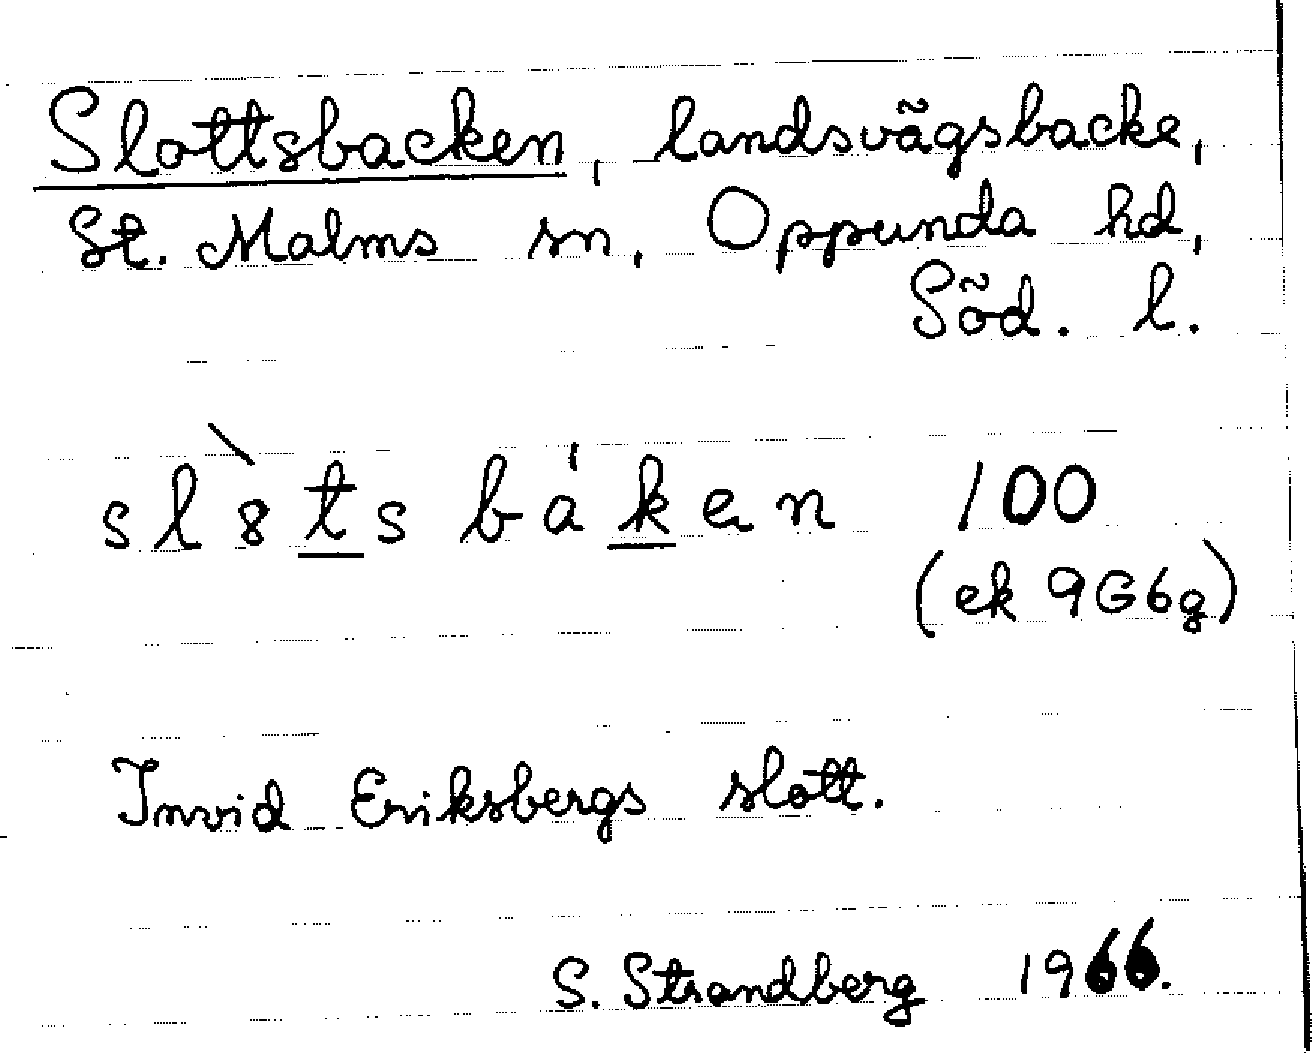 Slottsbacken, landsvägsbacke,
St. Malms sn, Oppunda hd,
Söd. l.
100
(ek 9G6g)
Invid Eriksbergs slott.
S. Strandberg 1966.